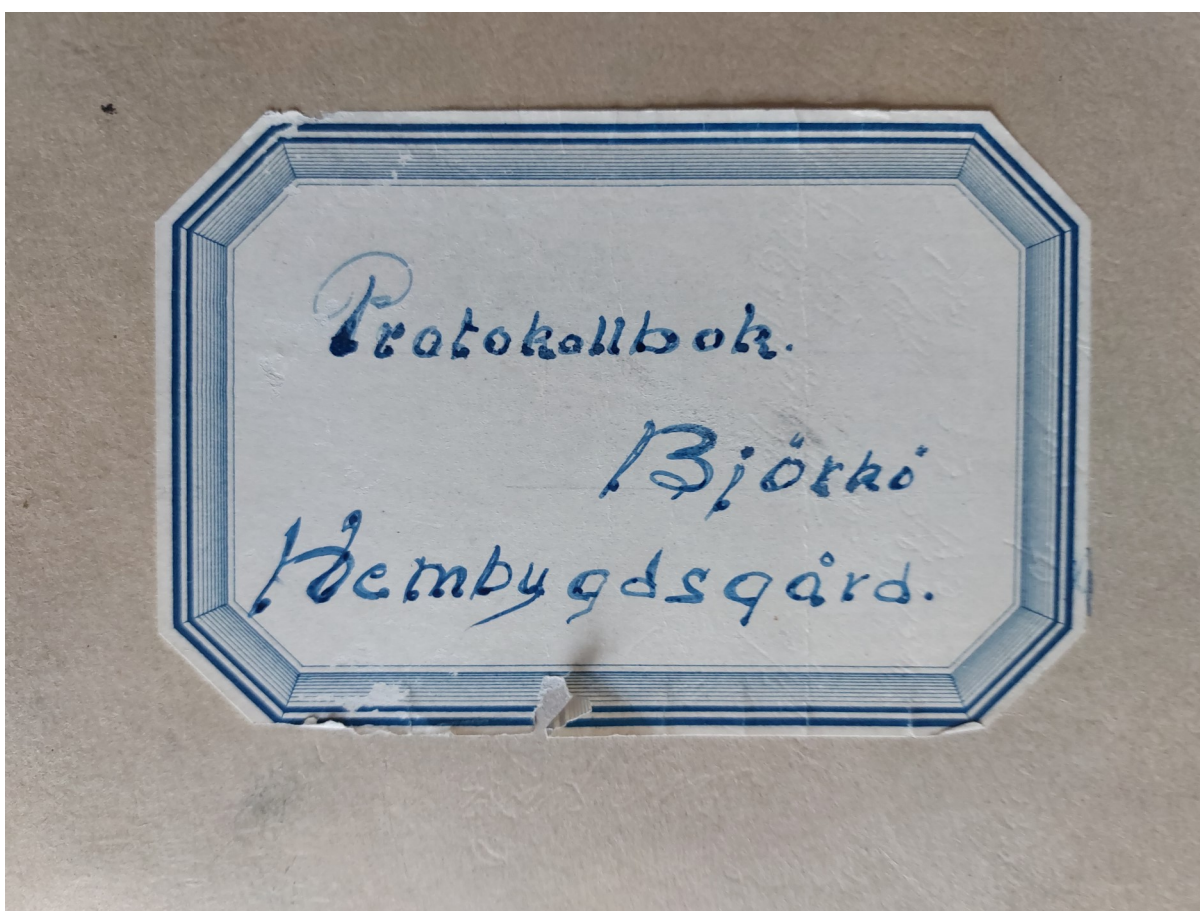 Protokollbok.
Björkö
Hembygdsgård.